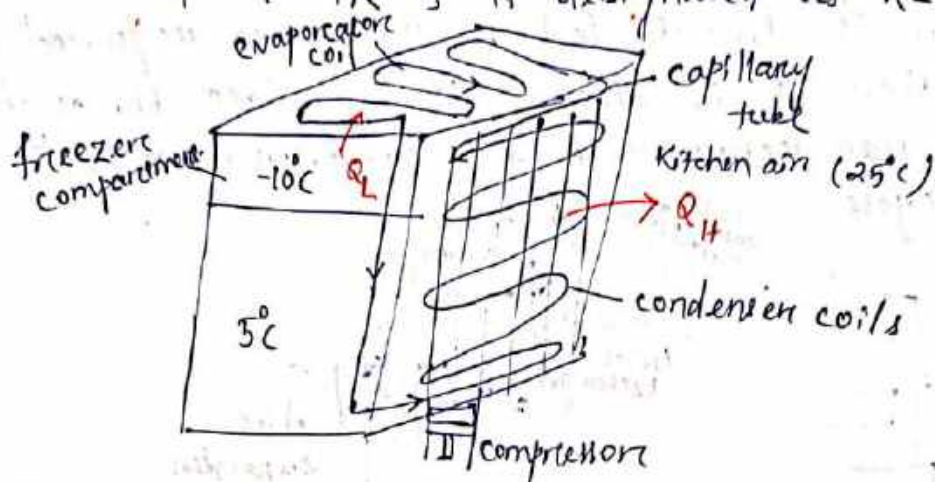 evaporcatore
coil
capillary
tube
freezere
compartment
-10°C
Q_L
Kitchen air (25°C)
Q_H
5°C
condenser coils
compressor